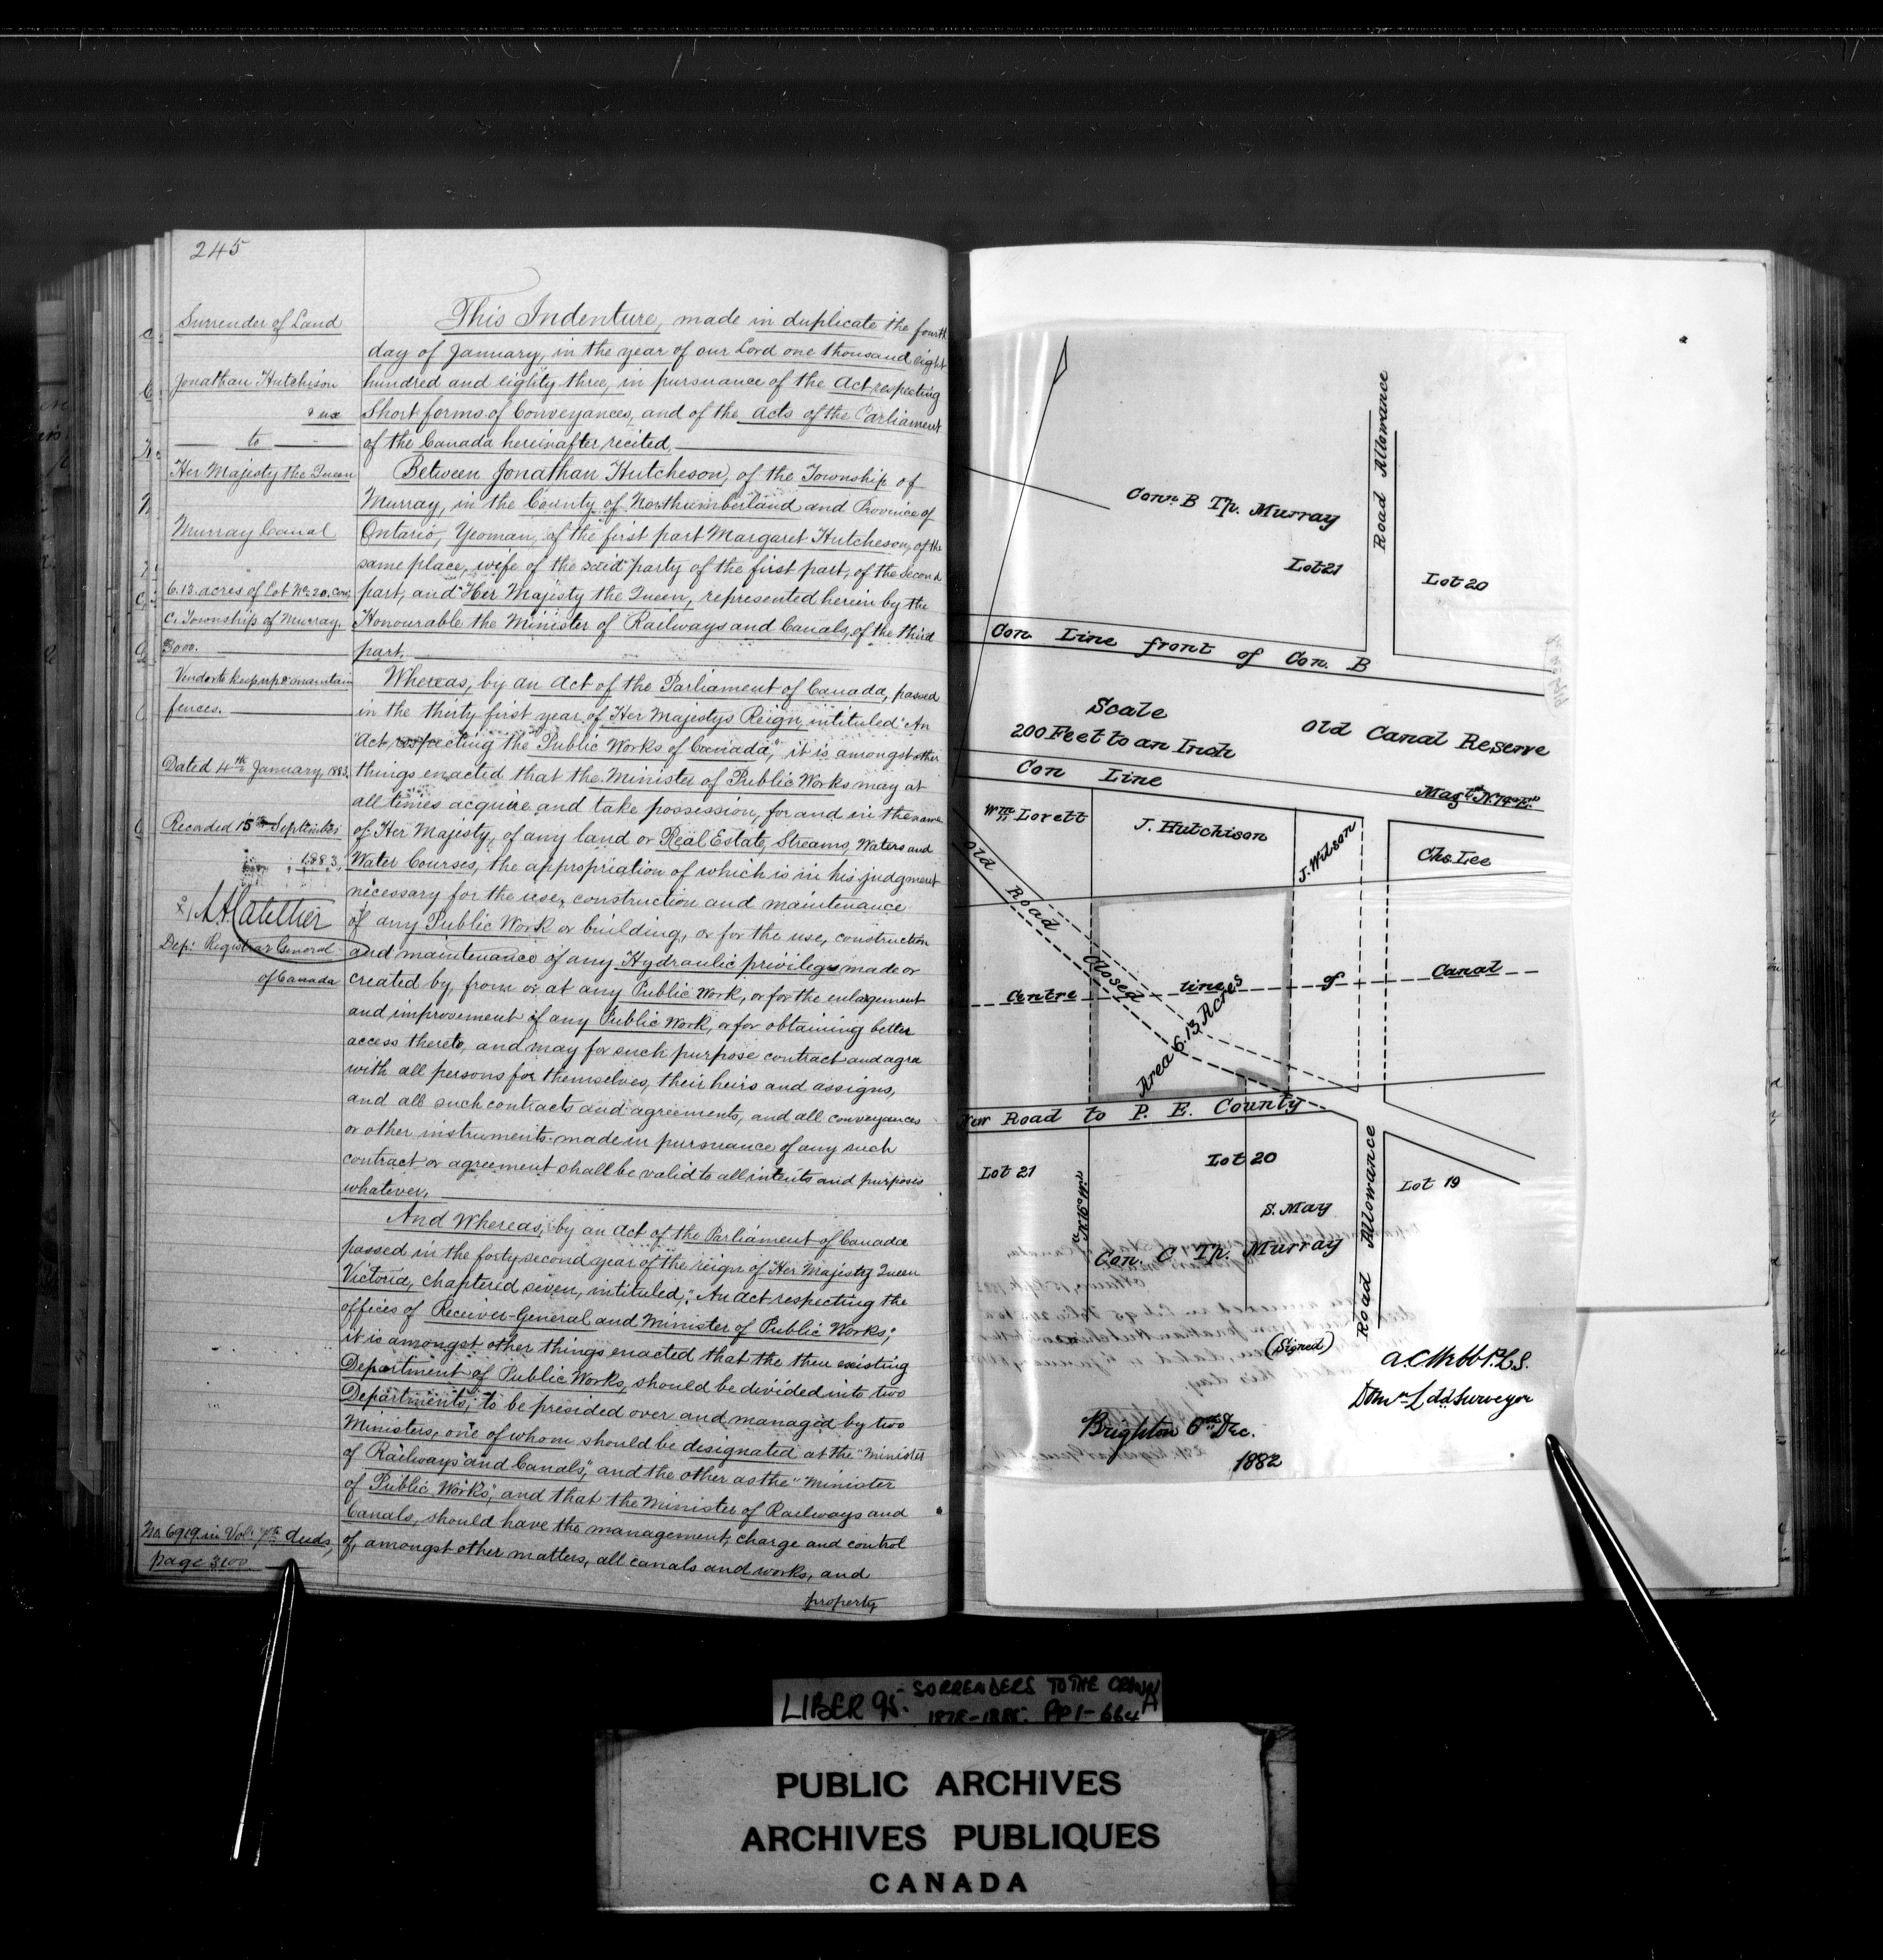 245
Surrender of Land
Jonathan Hutchison
& ux
to
Her Majesty the Queen
Murray Canal
6.13 acres of Lot No. 20. Con.
C. Township of Murray.
Vendor to keep up & maintain
fences.
Dated 4th January, 1883.
Recorded 15th September
1883,
Dep: Registrar General
of Canada
No. 6919 in Vol: deeds,
page 3100
This Indenture, made in duplicate the fourth
day of January, in the year of our Lord one thousand eight
hundred and eighty three, in pursuance of the Act respecting
Short forms of Conveyances, and of the Acts of the Parliament
of the Canada hereinafter recited,
Between Jonathan Hutcheson, of the Township of
Murray, in the County of Northumberland and Province of
Ontario, Yeoman, of the first part Margaret Hutcheson, of the
same place, wife of the said party of the first part, of the second
part, and Her Majesty the Queen, represented herein by the
Honourable the Minister of Railways and Canals, of the third
part.
Whereas, by an Act of the Parliament of Canada, passed
in the thirty first year of Her Majestys Reign, intituled "An
Act, respecting the Public Works of Canada," it is amongst other
things enacted that the Minister of Public Works may at
all times acquire and take possession, for and in the name
of Her Majesty, of any land or Real Estate, Streams, Waters and
Water Courses, the appropriation of which is in his judgment
necessary for the use, construction and maintenance
of any Public Work or building, or for the use, construction
and maintenance of any Hydraulic privilege made or
created by, from or at any Public Work, or for the enlargement
and improvement of any Public Work, or for obtaining better
access thereto, and may for such purpose contract and agree
with all persons for themselves, their heirs and assigns,
and all such contracts and agreements, and all conveyances
or other instruments made in pursuance of any such
contract or agreement shall be valid to all intents and purposes
whatever.
And Whereas, by an Act of the Parliament of Canada
passed in the forty second year of the reign of Her Majesty Queen
Victoria, chaptered seven, intituled, "An Act respecting the
offices of Receiver-General and Minister of Public Works;"
it is amongst other things enacted that the then existing
Department of Public Works, should be divided into two
Departments, to be presided over and managed by two
Ministers, one of whom should be designated at the "Minister
of Railways and Canals", and the other as the "Minister
of Public Works", and that the Minister of Railways and
Canals, should have the management, charge and control
of, amongst other matters, all canals and works, and
property
Road Allowance
Conn. B Tp. Murray
Lot 21
Lot 20
Con. Line front of Con. B
Scale
200 Feet to an Inch
Old Canal Reserve
Con Line
Wm Lovett
J. Hutchison
J. Wilson
Chs. Lee
Old Road
Closed
Centre line of Canal
Area 6.13 Acres
New Road to P. E. County
Lot 21
Lot 20
Lot 19
S. May
Road Allowance
Con. C Tp. Murray
(Signed)
A.C. Webb P.L.S.
Domn Ld Surveyor
Brighton 6th Dec.
1882
LIBER 95. SURRENDERS TO THE CROWN
1878-1885. PP 1-664
PUBLIC ARCHIVES
ARCHIVES PUBLIQUES
CANADA